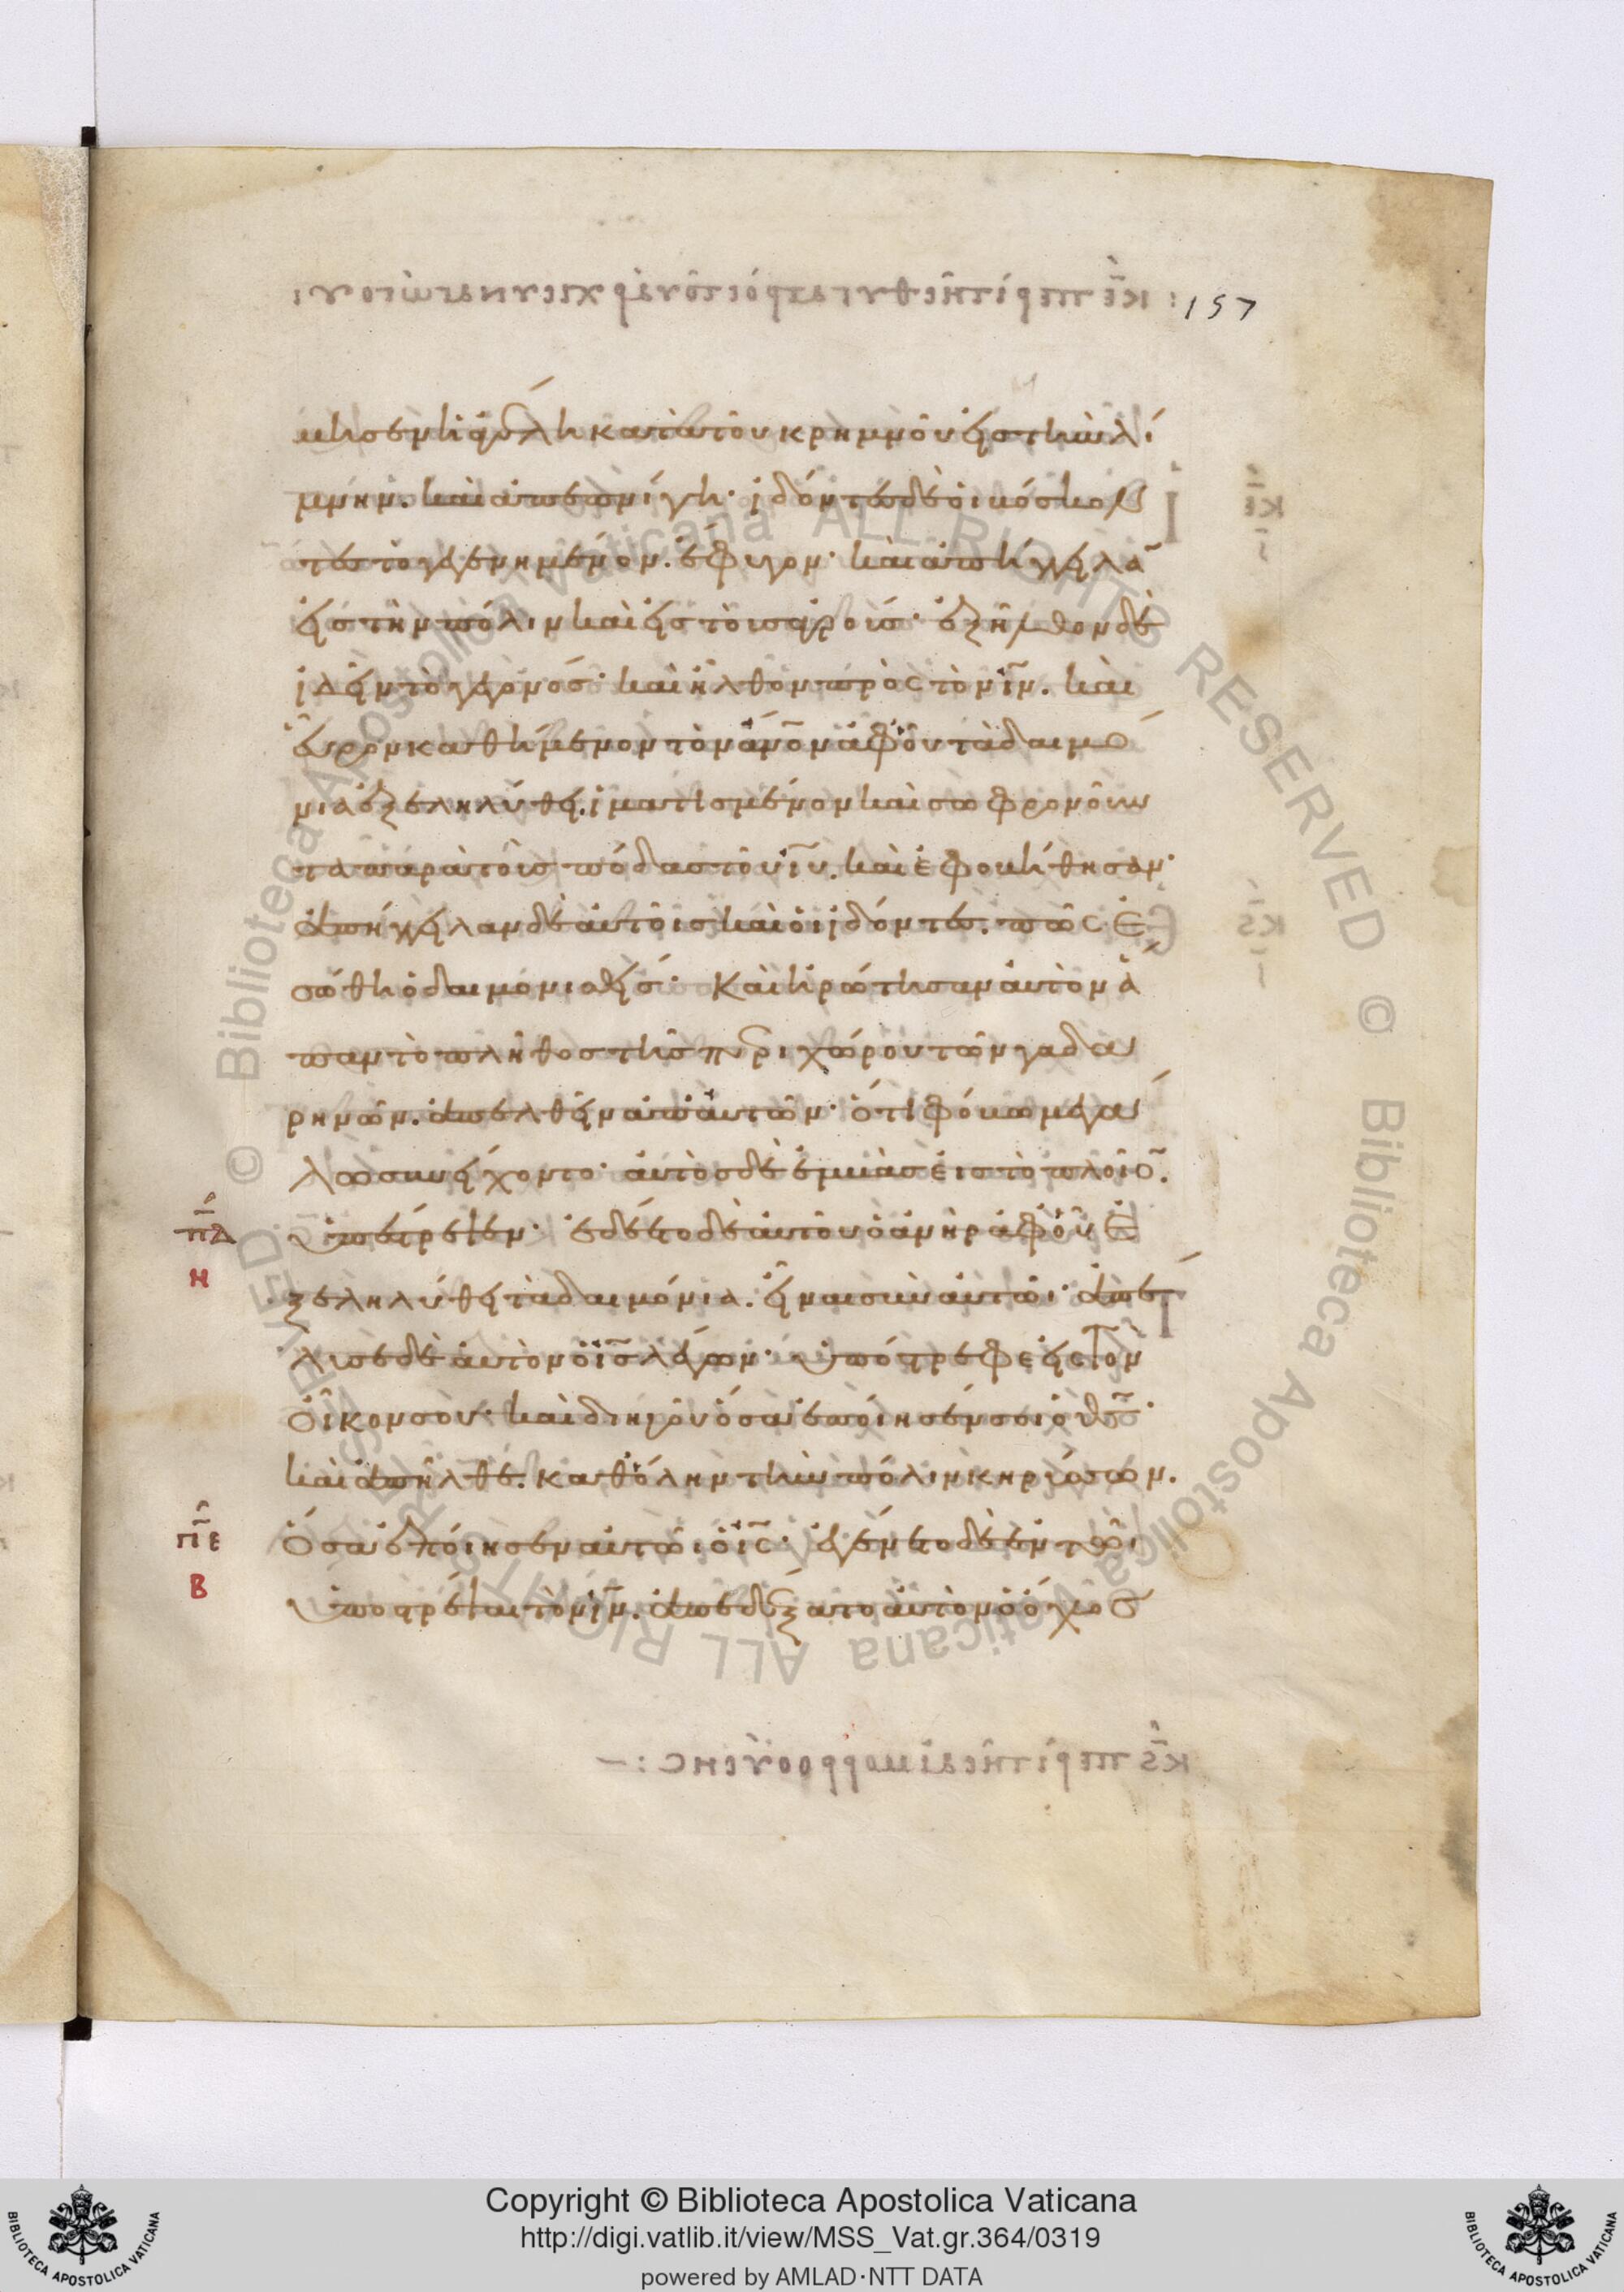 157
μησεν ἡ ἀγέλη κατὰ τοῦ κρημνοῦ εἰς τὴν λί
μνην. καὶ ἀπεπνίγη· ἰδόντες δὲ οἱ βόσκον
τες τὸ γεγενημένον. ἔφυγον· καὶ ἀπήγγειλαν
εἰς τὴν πόλιν καὶ εἰς τοὺς ἀγρούς· ἐξῆλθον δὲ
ἰδεῖν τὸ γεγονός· καὶ ἦλθον πρὸς τὸν ιν. καὶ
εὗρον καθήμενον τὸν ανον ἀφ' οὗ τὰ δαιμό
νια ἐξεληλύθει. ἱματισμένον καὶ σωφρονοῦν
τα παρὰ τοὺς πόδας τοῦ ιυ. καὶ ἐφοβήθησαν·
ἀπήγγειλαν δὲ αὐτοῖς καὶ οἱ ἰδόντες. πῶς ἐ
σώθη ὁ δαιμονισθείς· Καὶ ἠρώτησαν αὐτὸν ἅ
παν τὸ πλῆθος τῆς περιχώρου τῶν γαδα
ρηνῶν. ἀπελθεῖν ἀπ' αὐτῶν· ὅτι φόβω μεγά
λω συνείχοντο· αὐτὸς δὲ ἐμβὰς εἰς τὸ πλοῖον.
ὑπέστρεψεν· ἐδέετο δὲ αὐτοῦ ὁ ἀνὴρ ἀφ' οὗ ἐ
ξεληλύθει τὰ δαιμόνια. εἶναι σὺν αὐτῶι· ἀπέ
λυσε δὲ αὐτὸν ὁ ις λέγων· ὑπόστρεφε εἰς τὸν
οἶκον σου· καὶ διηγοῦ ὅσα ἐποίησέν σοι ὁ θς·
καὶ ἀπῆλθε. καθ' ὅλην τὴν πόλιν κηρύσσων.
ὅσα ἐποίησεν αὐτῶι ὁ ις· ἐγένετο δὲ ἐν τῶι
ὑποστρέψαι τὸν ιν. ἀπεδέξατο αὐτὸν ὁ ὄχλος
πδ
η
πε
β
Copyright © Biblioteca Apostolica Vaticana
http://digi.vatlib.it/view/MSS_Vat.gr.364/0319
powered by AMLAD·NTT DATA
BIBLIOTECA APOSTOLICA VATICANA
BIBLIOTECA APOSTOLICA VATICANA